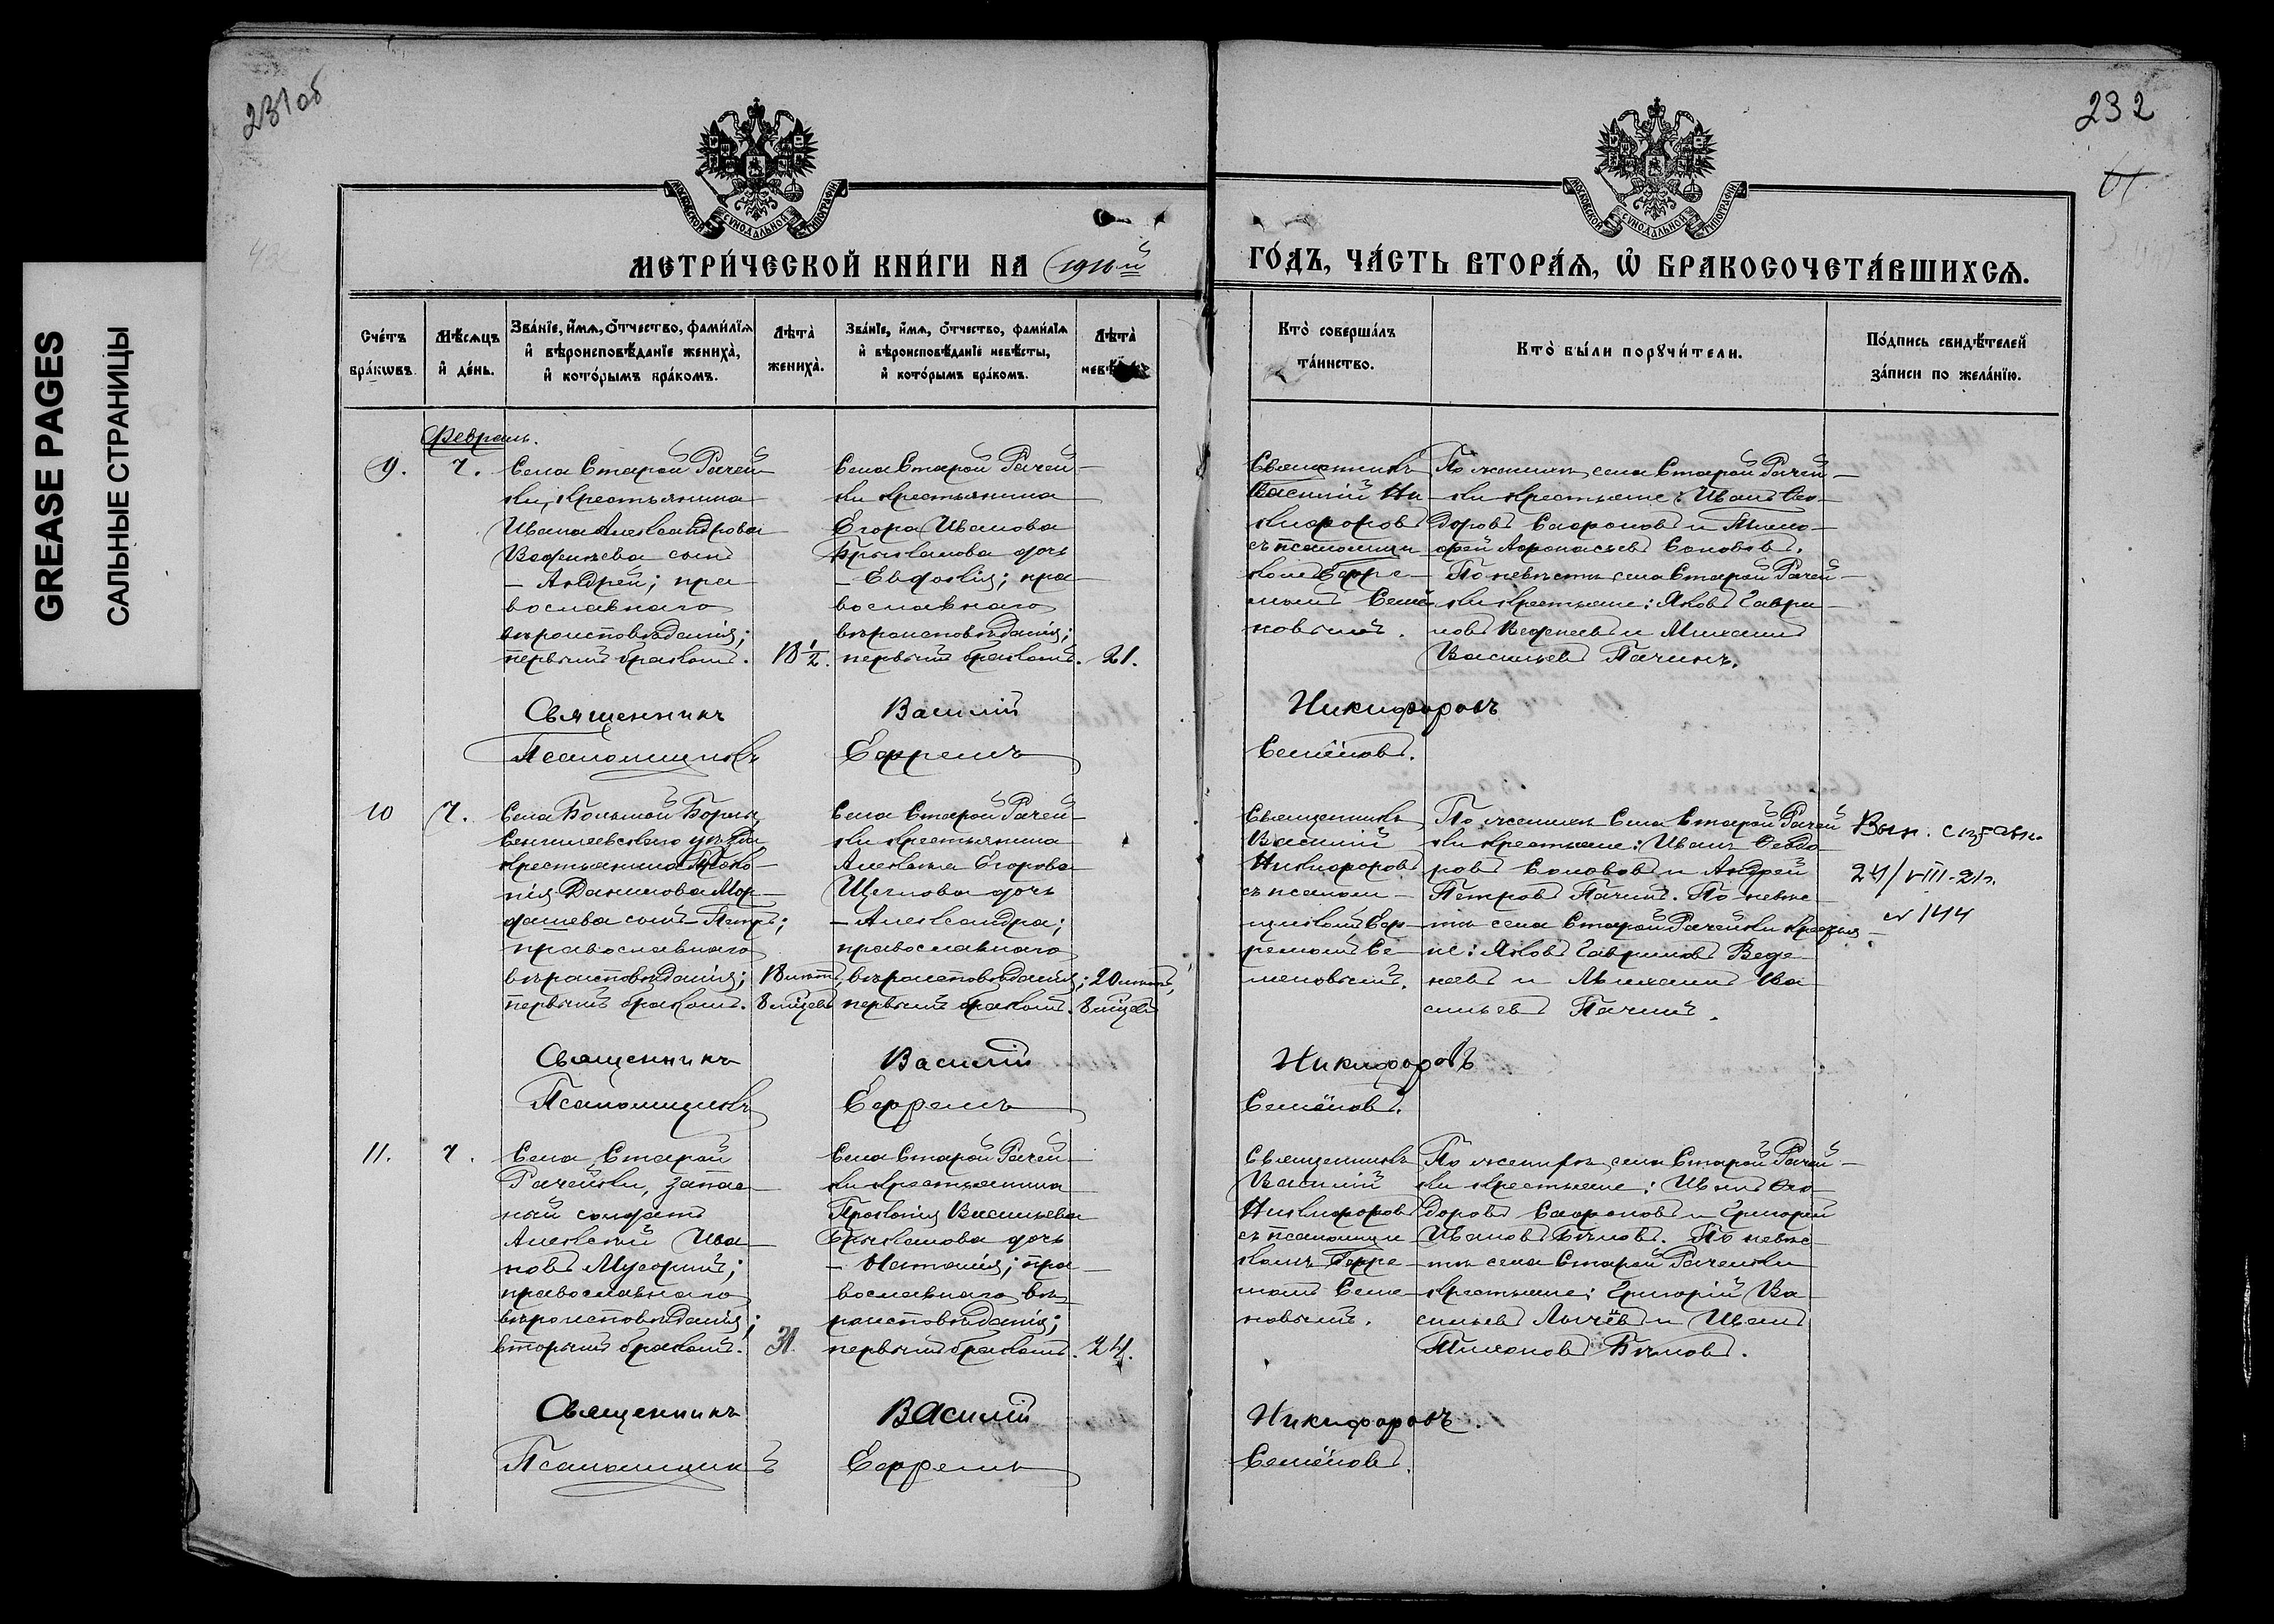 231 об
232
GREASE PAGES
САЛЬНЫЕ СТРАНИЦЫ
МОСКОВСКОЙ СѴНОДАЛЬНОЙ ТИПОГРАФІИ
МОСКОВСКОЙ СѴНОДАЛЬНОЙ ТИПОГРАФІИ
МЕТРИ́ЧЕСКОЙ КНИ́ГИ НА 1910-й
ГО́ДЪ, ЧА́СТЬ ВТОРА́Ѧ, Ѽ БРАКОСОЧЕТА́ВШИХСѦ.
Сче́тъ бра́кѡвъ.
Мѣ́сѧцъ и҆ де́нь.
Зва́нїе, и҆́мѧ, ѻ҆́тчество, фами́лїѧ
и҆ вѣроисповѣ́данїе жениха̀,
и҆ кото́рымъ бра́комъ.
Лѣта̀ жениха̀.
Зва́нїе, и҆́мѧ, ѻ҆́тчество, фами́лїѧ
и҆ вѣроисповѣ́данїе невѣ́сты,
и҆ кото́рымъ бра́комъ.
Лѣта̀
Кто̀ соверша́лъ
та́инство.
Кто̀ бы́ли порꙋчи́тели.
По́дпись свидѣ́телей
за́писи по жела́нїю.
Февраль.
9.
7.
Села Старой Рачей-
ки, крестьянина
Ивана Александрова
Веденѣева сынъ
– Андрей; пра-
вославнаго
вѣроисповѣданія;
первымъ бракомъ.
18 1/2.
Села Старой Рачей-
ки крестьянина
Егора Иванова
дочь
– Евдокія; пра-
вославнаго
вѣроисповѣданія;
первымъ бракомъ.
21.
Священникъ
Василій Ни-
кифоровъ
съ псаломщи-
комъ Ефре-
момъ Семе-
новымъ.
По женихѣ села Старой Рачей-
ки крестьяне: Иванъ Ѳео-
доровъ Сафроновъ и Тимо-
фей Афонасьевъ Соловьевъ.
По невѣстѣ села Старой Рачей-
ки крестьяне: Яковъ Гаври-
ловъ Веденеевъ и Михаилъ
Васильевъ Пачинъ.
Священникъ Василій Никифоровъ
Псаломщикъ Ефремъ Семёновъ.
10
7.
Села Большой Борлы,
Сенгилеевскаго уѣзда
крестьянина Проко-
пія Данилова Мор-
дашева сынъ – Петръ;
православнаго
вѣроисповѣданія;
первымъ бракомъ.
18 лѣтъ,
8 мѣсцевъ
Села Старой Рачей-
ки крестьянина
Алексѣя Егорова
Щеглова дочь
– Александра;
православнаго
вѣроисповѣданія;
первымъ бракомъ.
20 лѣтъ,
8 мѣсцевъ
Священникъ
Василій
Никифоровъ
съ псалом-
щикомъ Еф-
ремомъ Се-
меновымъ.
По женихѣ Села Старой Рачей
ки крестьяне: Иванъ Ѳеодо-
ровъ Соловьевъ и Андрей
Петровъ Пачинъ. По невѣс-
тѣ села Старой Рачейки крестья-
не: Яковъ Гавриловъ Веде-
неевъ и Михаилъ Ва-
сильевъ Пачинъ.
24/VIII-21г.
№ 144
Священникъ Василій Никифоровъ
Псаломщикъ Ефремъ Семёновъ.
11.
7.
Села Старой
Рачейки, запас-
ный солдатъ
Алексѣй Ива-
новъ Мусоринъ;
православнаго
вѣроисповѣданія;
вторымъ бракомъ.
31.
Села Старой Рачей-
ки крестьянина
Прокопія Васильева
дочь
– Наталія; пра-
вославнаго вѣ-
роисповѣданія;
первымъ бракомъ.
24.
Священникъ
Василій
Никифоровъ
съ псаломщи-
комъ Ефре-
момъ Семе-
новымъ.
По женихѣ села Старой Рачей-
ки крестьяне: Иванъ Ѳео-
доровъ Сафроновъ и Григорій
Ивановъ Бѣловъ. По невѣс-
тѣ села Старой Рачейки
крестьяне: Григорій Ва-
сильевъ Лычёвъ и Иванъ
Тихоновъ Бѣловъ.
Священникъ Василій Никифоровъ.
Псаломщикъ Ефремъ Семёновъ.